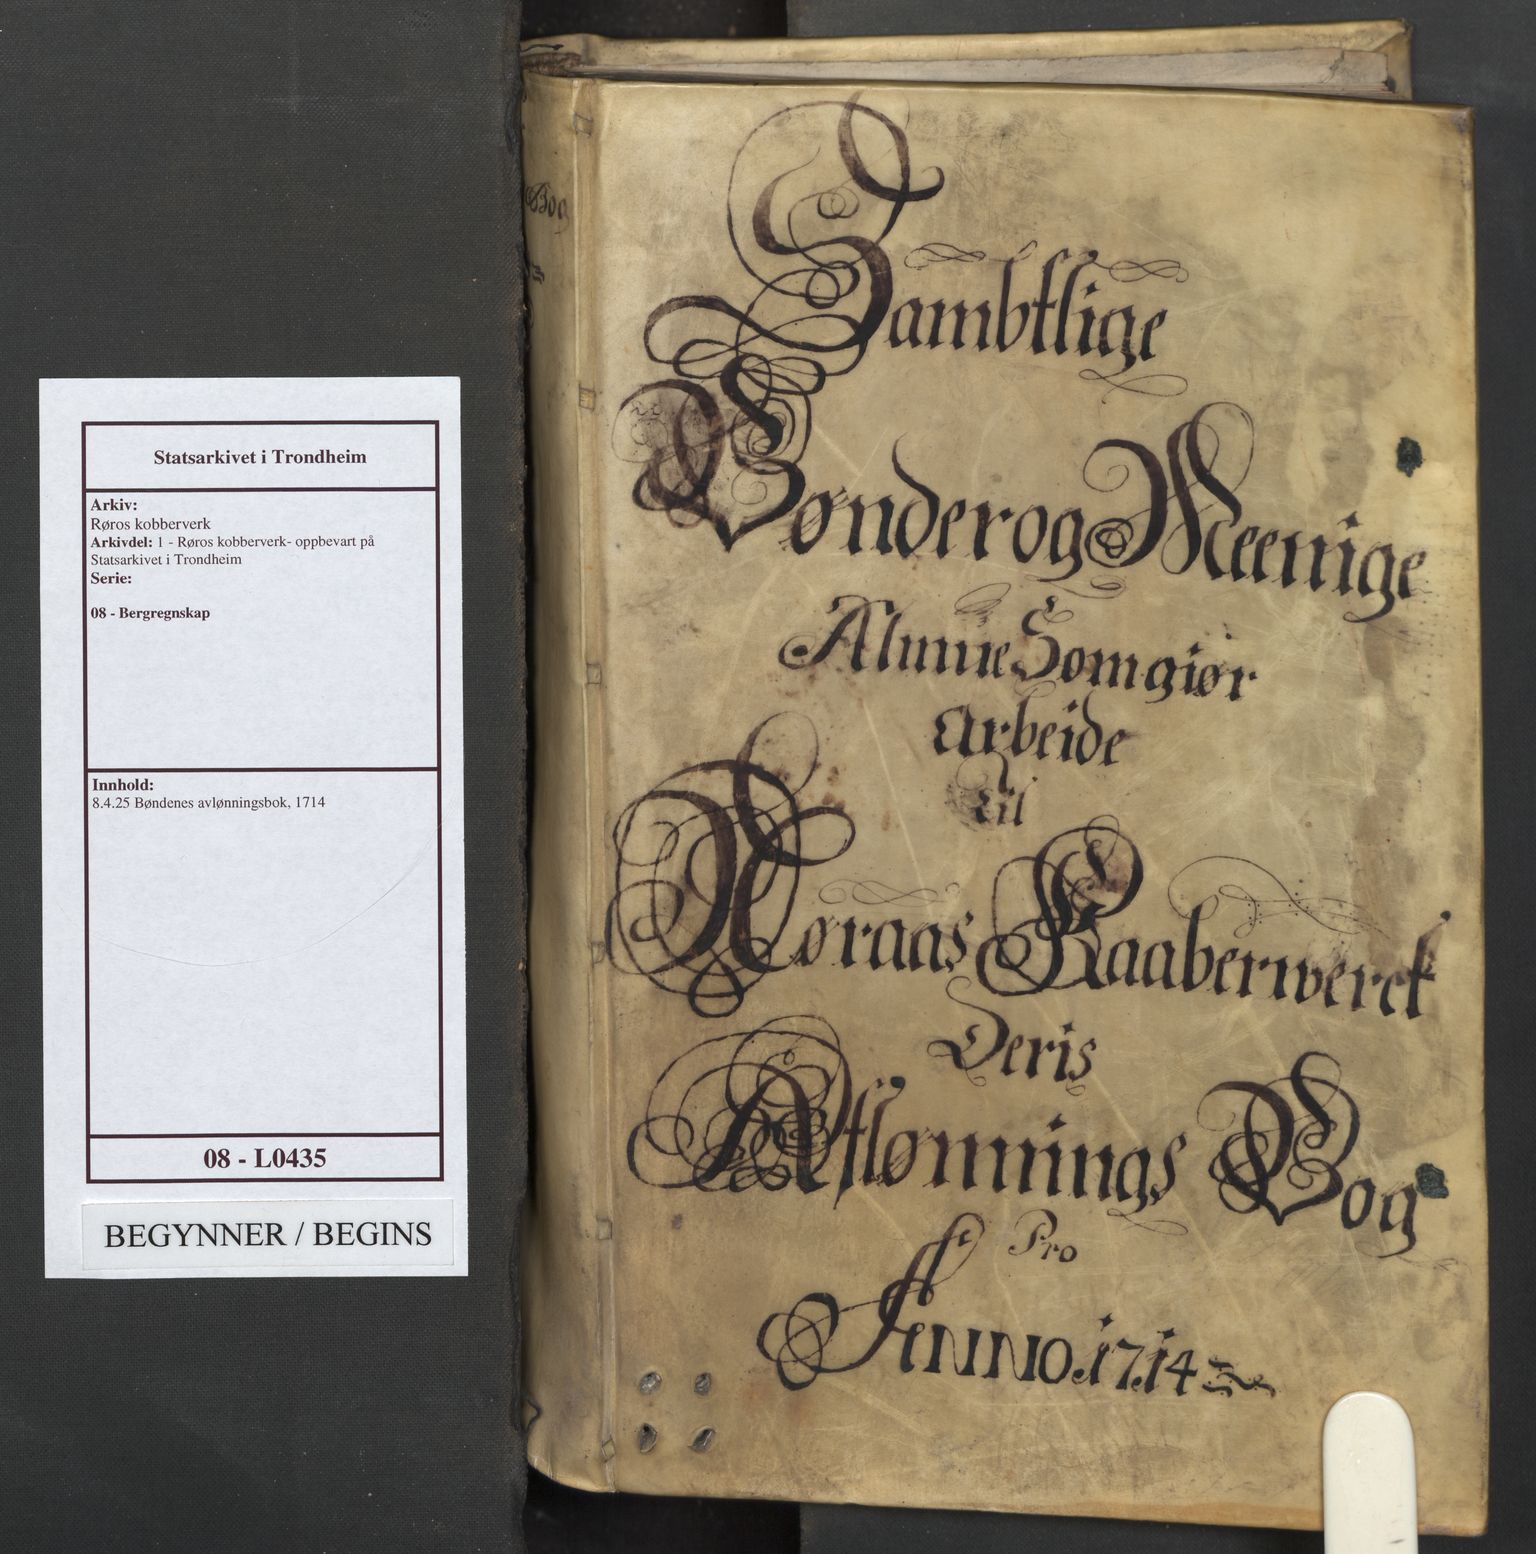 Statsarkivet i Trondheim
Arkiv:
Røros kobberverk
Arkivdel: 1 - Røros kobberverk- oppbevart på
Statsarkivet i Trondheim
Serie:
08 - Bergregnskap
Innhold:
8.4.25 Bøndenes avlønningsbok, 1714
08 - L0435
BEGYNNER / BEGINS
Bog
Sambtlige
Bønder og Meenige
Almue Som giør
Arbeide
til
Røraas Kaaberwerck
Deris
Aflønnings Bog
Pro
Anno. 1714